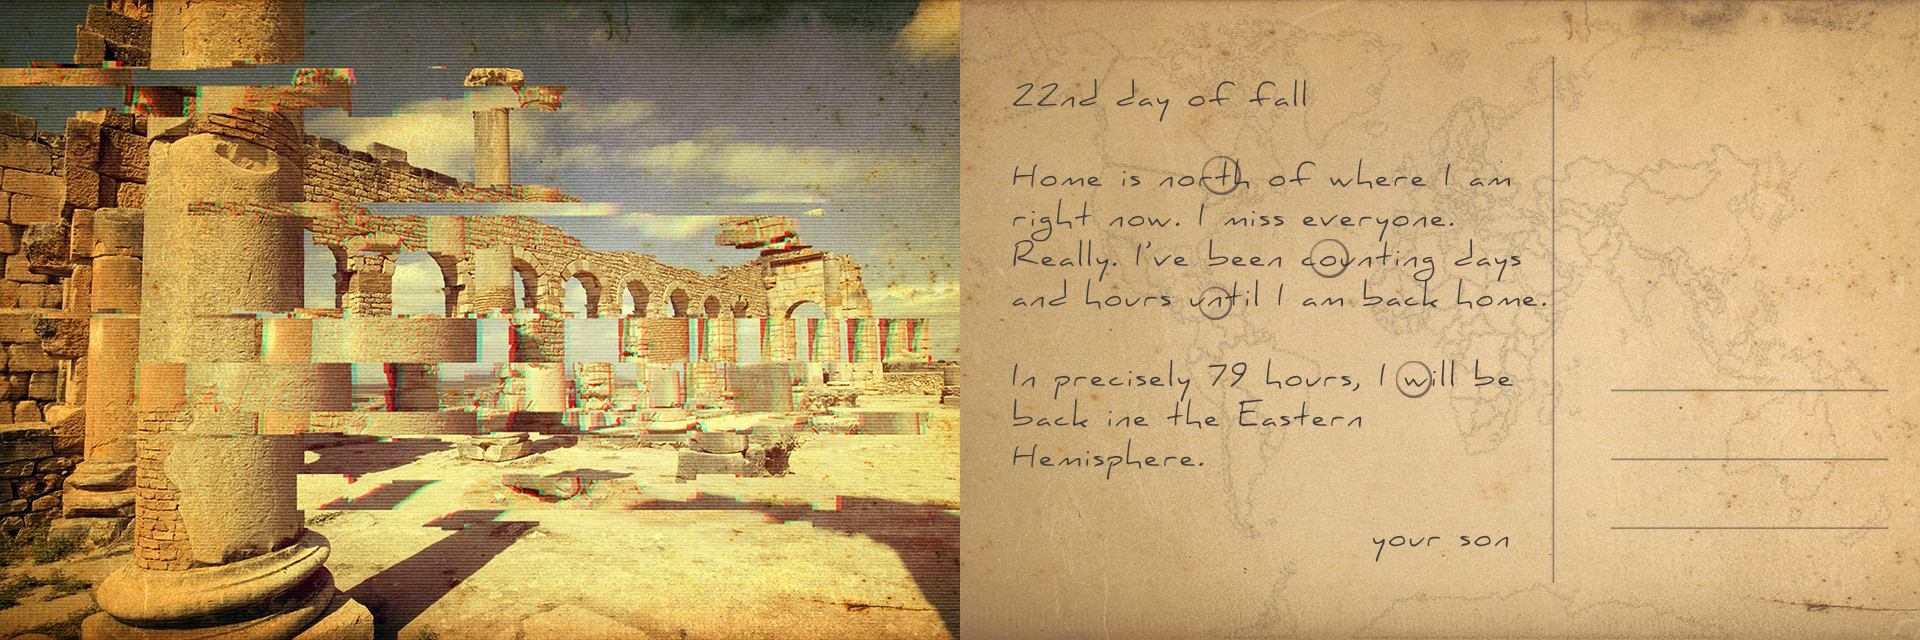 22nd day of fall
Home is north of where I am
right now. I miss everyone.
Really. I've been counting days
and hours until I am back home.
In precisely 79 hours, I will be
back ine the Eastern
Hemisphere.
your son